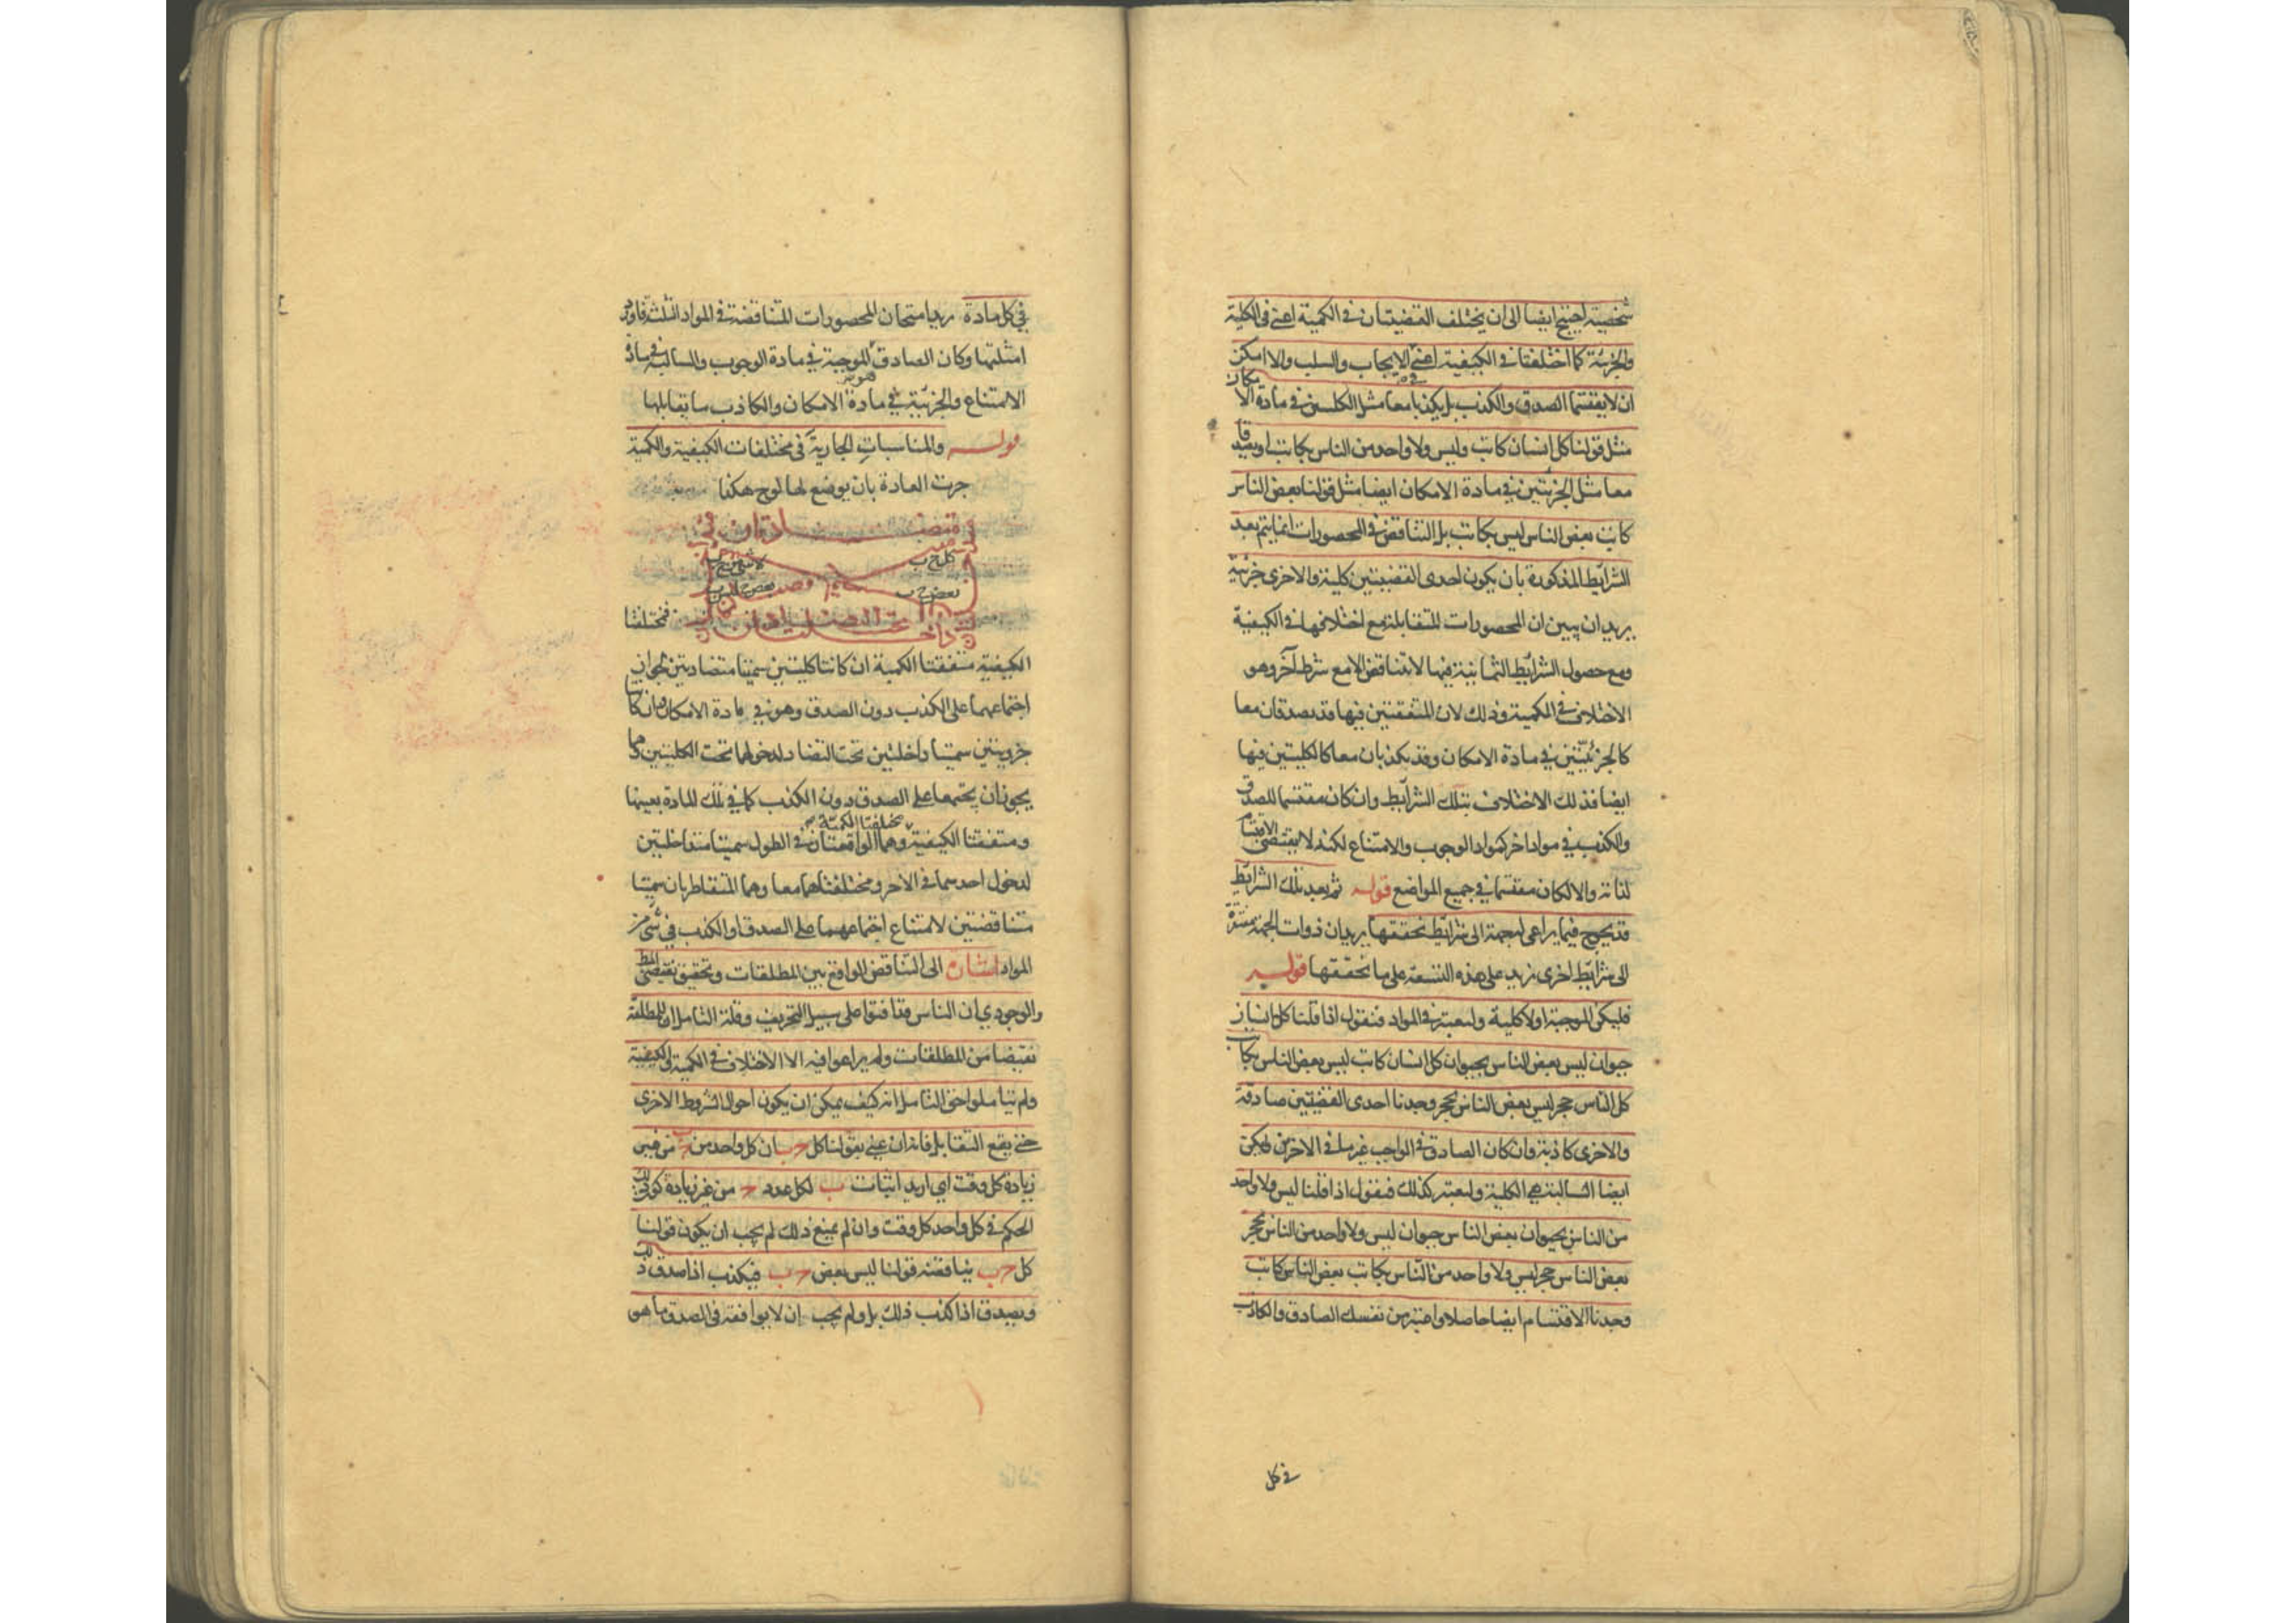 شخصية احتيج ايضا الى ان يختلف القضيتان في الكمية اعني في الكلية
والجزئية كما اختلفتا في الكيفية اعني في الايجاب والسلب والا امكن
ان لا يقتسما الصدق والكذب بل يكذبا معا مثل الكليتين في مادة الامكان
مثل قولنا كل انسان كاتب وليس ولا واحد من الناس بكاتب او يصدقا
معا مثل الجزئيتين في مادة الامكان ايضا مثل قولنا بعض الناس
كاتب بعض الناس ليس بكاتب بل التناقض في المحصورات انما يتم بعد
الشرايط المذكورة بان يكون احدى القضيتين كلية والاخرى جزئية
يريد ان يبين ان المحصورات المتقابلة مع اختلافها في الكيفية
ومع حصول الشرايط الثمانية فيها لا تتناقض الا مع شرط آخر وهو
الاختلاف في الكمية وذلك لان المتفقتين فيها قد يصدقان معا
كالجزئيتين في مادة الامكان وقد يكذبان معا كالكليتين فيها
ايضا فذلك الاختلاف بتلك الشرايط وان كان مقتسما للصدق
والكذب في مواد اخر كمواد الوجوب والامتناع لكنه لا يقتضي الاقتسام
لذاته والا لكان مقتسما في جميع المواضع قوله ثم بعد تلك الشرايط
قد يحوج فيما يراعى له جهة الى شرايط نحققها يريد ان ذوات الجهة مفتقرة
الى شرايط اخرى تزيد على هذه التسعة على ما نحققها قوله
فليكن الموجبة اولا كلية ولنعتبر في المواد فنقول اذا قلنا كل انسان
حيوان ليس بعض الناس بحيوان كل انسان كاتب ليس بعض الناس بكاتب
كل الناس حجر ليس بعض الناس بحجر وجدنا احدى القضيتين صادقة
والاخرى كاذبة وان كان الصادق في الواجب غير ما في الاخرين وليكن
ايضا السالبة هي الكلية ولنعتبر كذلك فنقول اذا قلنا ليس ولا واحد
من الناس بحيوان بعض الناس حيوان ليس ولا واحد من الناس بحجر
بعض الناس حجر ليس ولا واحد من الناس بكاتب بعض الناس كاتب
وجدنا الاقتسام ايضا حاصلا واعتبر من نفسك الصادق والكاذب
في كل
في كل مادة يريد امتحان المحصورات المتناقضة في المواد الثلثة فاورد
امثلتها وكان الصادق الموجبة في مادة الوجوب والسالبة في مادة
الامتناع والجزئية في مادة الامكان والكاذب ما يقابلها
قوله والمناسبات الجارية في مختلفات الكيفية والكمية
جرت العادة بان يوضع لها لوح هكذا
كل ج ب
لا شي من ج ب
بعض ج ب
بعض ج ليس ب
فمختلفتا
الكيفية متفقتا الكمية ان كانتا كليتين سميتا متضادتين لجواز
اجتماعهما على الكذب دون الصدق وهو في مادة الامكان وان كانتا
جزويتين سميتا داخلتين تحت التضاد لدخولهما تحت الكليتين وهما
يجوز ان يجتمعا على الصدق دون الكذب كما في تلك المادة بعينها
مختلفتا الكمية
ومتفقتا الكيفية وهما الواقعتان في الطول سميتا متداخلتين
لدخول احدهما في الاخر ومختلفتاهما معا وهما المتقاطرتان سميتا
متناقضتين لامتناع اجتماعهما على الصدق او الكذب في شي من
المواد اشارة الى التناقض الواقع بين المطلقات وتحقيق نقيض المطلق
والوجودي ان الناس قد افتوا على سبيل التحريف وقلة التامل ان للمطلقة
نقيضا من المطلقات ولم يراعوا فيه الا الاختلاف في الكمية والكيفية
ولم يتاملوا حق التامل انه كيف يمكن ان يكون احوال الشروط الاخرى
حتى يقع التقابل فانه ان عني بقولنا كل ج ب ان كل واحد من ج ب من غير
زيادة كل وقت اي اريد اثبات ب لكل عدد ج من غير زيادة كون ذلك
الحكم في كل واحد كل وقت وان لم يمنع ذلك لم يجب ان يكون قولنا
كل ج ب يناقضه قولنا ليس بعض ج ب فيكذب اذا صدق ذلك
ويصدق اذا كذب ذلك بل ولم يجب ان لا يوافقه في الصدق ما هو